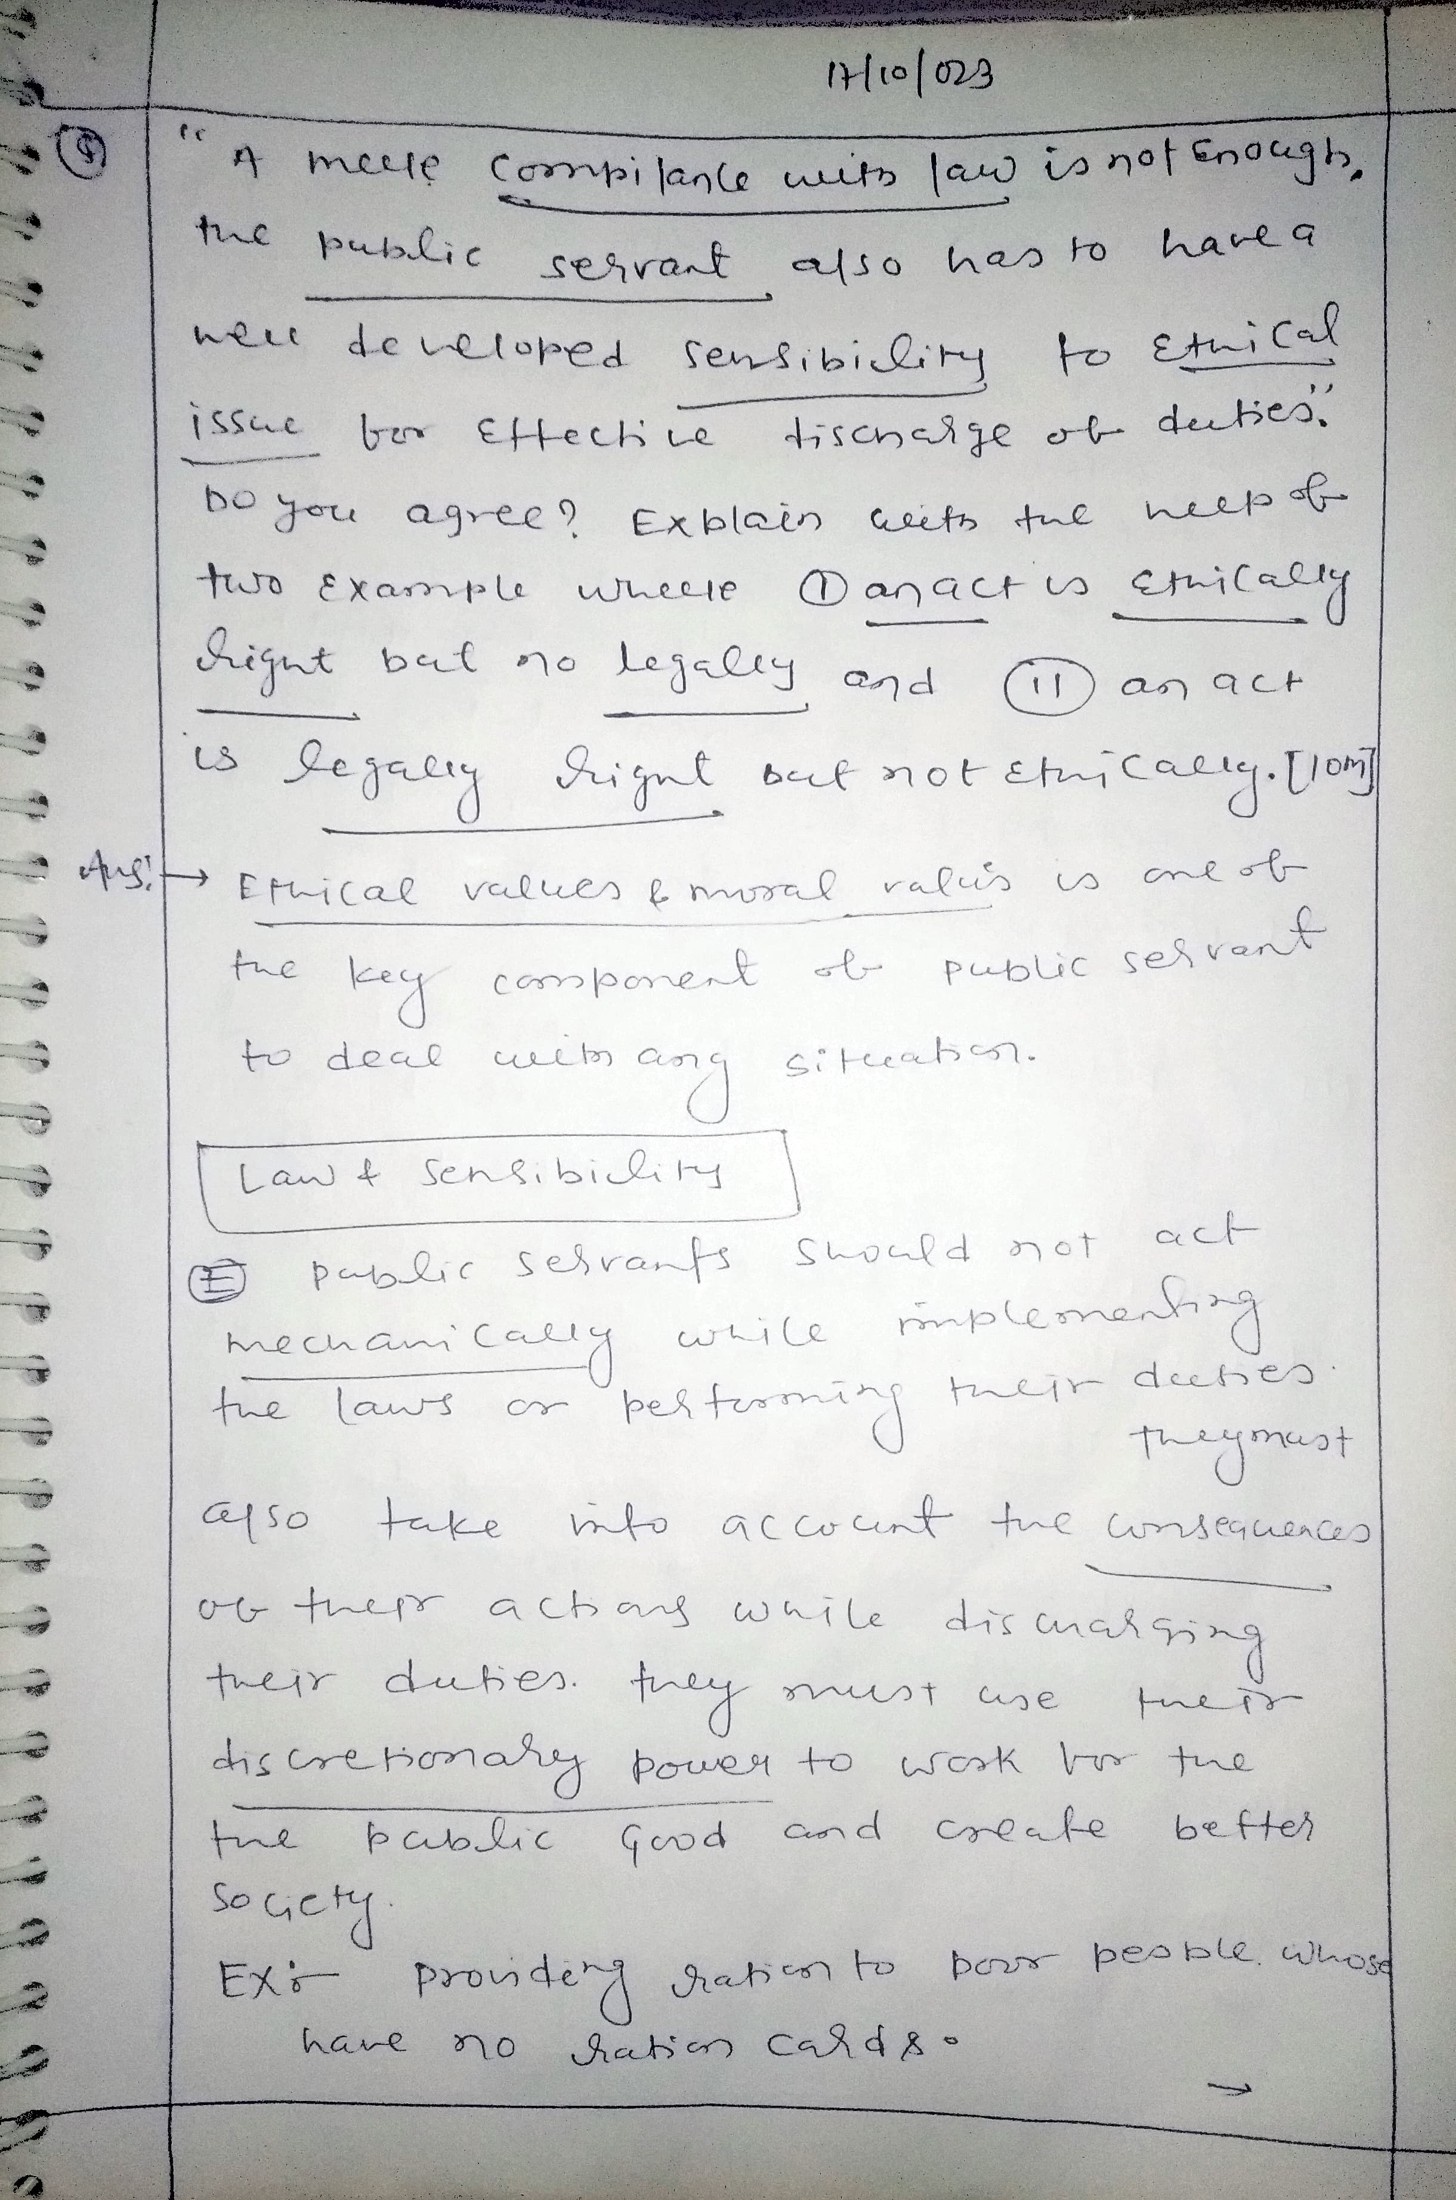 17/10/023
"A meere compilance with law is not Enough,
the public servant also has to have a
well developed sensibility to Ethical
issue for Effective discharge of duties."
Do you agree? Explain with the help of
two Example wheere ① an act is Ethically
right but no legally and ⑪ an act
is legally right but not Ethically. [10M]
Ans:→ Ethical values & moral values is one of
the key component of public servant
to deal with any situation.
Law & Sensibility
Ⓘ public servants should not act
mechanically while implementing
the laws or performing their duties.
they must
also take into account the consequences
of their actions while discharging
their duties. they must use their
discretionary power to work for the
the public Good and create better
society.
Ex:- providing ration to poor people whose
have no ration cards.
→